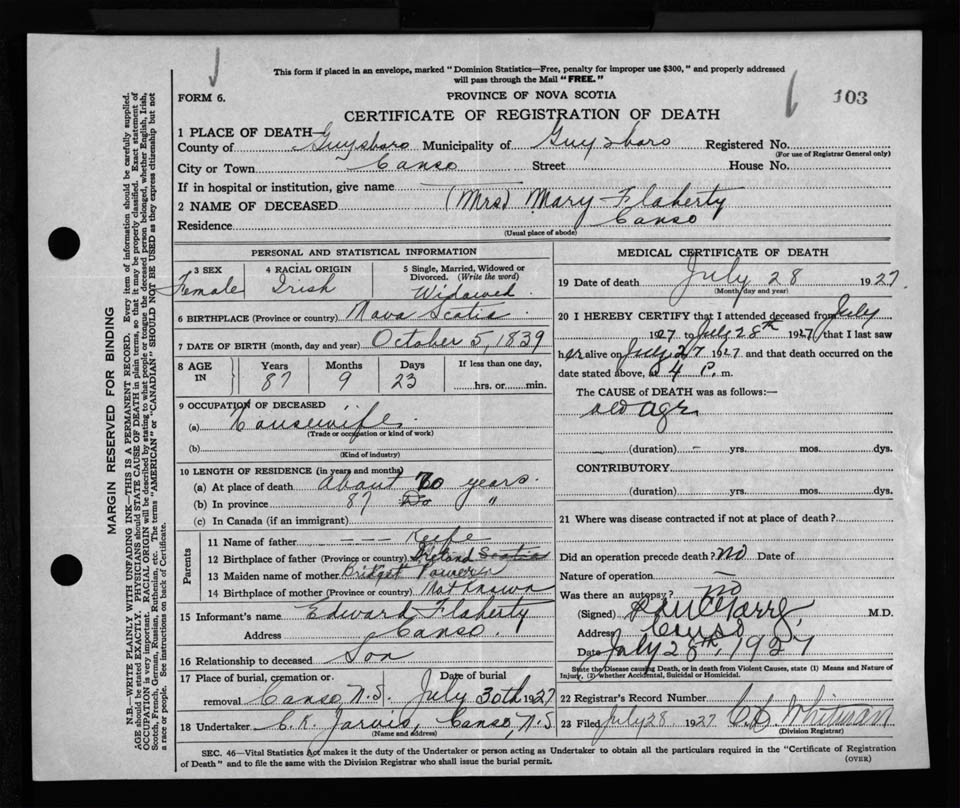 This form if placed in an envelope, marked "Dominion Statistics—Free, penalty for improper use $300," and properly addressed
will pass through the Mail "FREE."
FORM 6.
PROVINCE OF NOVA SCOTIA
103
CERTIFICATE OF REGISTRATION OF DEATH
1 PLACE OF DEATH—
County of Guysboro Municipality of Guysboro Registered No.
(For use of Registrar General only)
City or Town Canso Street House No.
If in hospital or institution, give name
2 NAME OF DECEASED (Mrs) Mary Flaherty
Residence Canso
(Usual place of abode)
PERSONAL AND STATISTICAL INFORMATION
3 SEX Female
4 RACIAL ORIGIN Irish
5 Single, Married, Widowed or
Divorced. (Write the word)
Widowed
6 BIRTHPLACE (Province or country) Nova Scotia
7 DATE OF BIRTH (month, day and year) October 5, 1839
8 AGE IN
Years Months Days If less than one day,
87 9 23 hrs. or min.
9 OCCUPATION OF DECEASED
(a) Housewife
(Trade or occupation or kind of work)
(b)
(Kind of industry)
10 LENGTH OF RESIDENCE (in years and months)
(a) At place of death About 70 years.
(b) In province 87 Do "
(c) In Canada (if an immigrant)
Parents
11 Name of father — — — Keefe
12 Birthplace of father (Province or country) Ireland Scotia
13 Maiden name of mother Bridget Powers
14 Birthplace of mother (Province or country) Not Known
15 Informant's name Edward Flaherty
Address Canso.
16 Relationship to deceased Son
17 Place of burial, cremation or Date of burial
removal Canso N.S. July 30th 1927
18 Undertaker C.K. Jarvis, Canso, N.S
(Name and address)
MEDICAL CERTIFICATE OF DEATH
19 Date of death July 28 1927
(Month, day and year)
20 I HEREBY CERTIFY that I attended deceased from July
1927 to July 28th 1927 that I last saw
her alive on July 27 1927 and that death occurred on the
date stated above, at 4 P. m.
The CAUSE of DEATH was as follows:—
old age
(duration) yrs. mos. dys.
CONTRIBUTORY
(duration) yrs. mos. dys.
21 Where was disease contracted if not at place of death?
Did an operation precede death? no Date of
Nature of operation
Was there an autopsy? no
(Signed) M.D.
Address Canso
Date July 28th, 1927
State the Disease causing Death, or in death from Violent Causes, state (1) Means and Nature of
Injury, (2) whether Accidental, Suicidal or Homicidal.
22 Registrar's Record Number
23 Filed July 28 1927 Whitman
(Division Registrar)
SEC. 46—Vital Statistics Act makes it the duty of the Undertaker or person acting as Undertaker to obtain all the particulars required in the "Certificate of Registration
of Death" and to file the same with the Division Registrar who shall issue the burial permit.
(OVER)
MARGIN RESERVED FOR BINDING
N.B.—WRITE PLAINLY WITH UNFADING INK—THIS IS A PERMANENT RECORD. Every item of information should be carefully supplied.
AGE should be stated EXACTLY. PHYSICIANS should STATE CAUSE OF DEATH in plain terms, so that it may be properly classified. Exact statement of
OCCUPATION is very important. RACIAL ORIGIN will be described by stating to what people or tongue the deceased person belonged, whether English, Irish,
Scotch, French, German, Russian, Ruthenian, etc. The terms "AMERICAN" or "CANADIAN" SHOULD NOT BE USED as they express citizenship but not
a race or people. See instructions on back of Certificate.